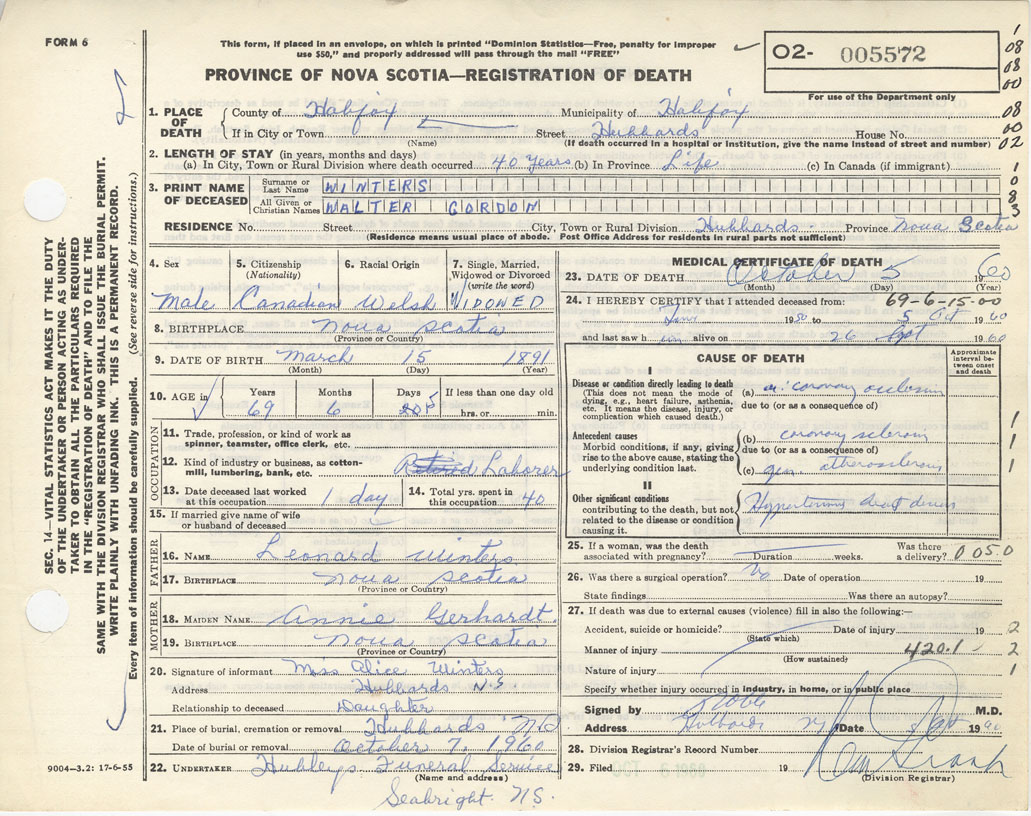 FORM 6
This form, if placed in an envelope, on which is printed "Dominion Statistics—Free, penalty for improper
use $50," and properly addressed will pass through the mail "FREE"
PROVINCE OF NOVA SCOTIA—REGISTRATION OF DEATH
O2- 005572
For use of the Department only
1
08
08
00
08
00
02
1
0
8
3
SEC. 14—VITAL STATISTICS ACT MAKES IT THE DUTY
OF THE UNDERTAKER OR PERSON ACTING AS UNDER-
TAKER TO OBTAIN ALL THE PARTICULARS REQUIRED
IN THE "REGISTRATION OF DEATH" AND TO FILE THE
SAME WITH THE DIVISION REGISTRAR WHO SHALL ISSUE THE BURIAL PERMIT.
WRITE PLAINLY WITH UNFADING INK. THIS IS A PERMANENT RECORD.
Every item of information should be carefully supplied. (See reverse side for instructions.)
1. PLACE OF DEATH
County of Halifax Municipality of Halifax
If in City or Town Street Hubbards House No.
(Name) (If death occurred in a hospital or institution, give the name instead of street and number)
2. LENGTH OF STAY (in years, months and days)
(a) In City, Town or Rural Division where death occurred 40 years (b) In Province Life (c) In Canada (if immigrant)
3. PRINT NAME OF DECEASED
Surname or Last Name WINTERS
All Given or Christian Names WALTER GORDON
RESIDENCE No. Street City, Town or Rural Division Hubbards Province Nova Scotia
(Residence means usual place of abode. Post Office Address for residents in rural parts not sufficient)
4. Sex Male
5. Citizenship (Nationality) Canadian
6. Racial Origin Welsh
7. Single, Married, Widowed or Divorced (write the word) WIDOWED
8. BIRTHPLACE Nova Scotia
(Province or Country)
9. DATE OF BIRTH March 15 1891
(Month) (Day) (Year)
10. AGE in Years 69 Months 6 Days If less than one day hrs. or min.
OCCUPATION
11. Trade, profession, or kind of work as
spinner, teamster, office clerk, etc.
12. Kind of industry or business, as cotton-
mill, lumbering, bank, etc. Retired Laborer
13. Date deceased last worked at this occupation 1 day
14. Total yrs. spent in this occupation 40
15. If married give name of wife
or husband of deceased
FATHER
16. NAME Leonard Winters
17. BIRTHPLACE Nova Scotia
(Province or Country)
MOTHER
18. MAIDEN NAME Annie Gerhardt
19. BIRTHPLACE Nova Scotia
(Province or Country)
20. Signature of informant Miss Alice Winters
Address Hubbards N.S.
Relationship to deceased Daughter
21. Place of burial, cremation or removal Hubbards
Date of burial or removal October 7, 1960
22. UNDERTAKER Hubleys Funeral Service
(Name and address)
Seabright. N.S.
9004-3.2: 17-6-55
MEDICAL CERTIFICATE OF DEATH
23. DATE OF DEATH October 5 1960
(Month) (Day) (Year)
24. I HEREBY CERTIFY that I attended deceased from: 69-6-15-00
19 50 to 5 Oct 1960
and last saw him alive on 26 Sept 1960
CAUSE OF DEATH
Approximate interval between onset and death
I
Disease or condition directly leading to death
(This does not mean the mode of dying, e.g., heart failure, asthenia, etc. It means the disease, injury, or complication which caused death.)
(a) coronary occlusion
due to (or as a consequence of)
Antecedent causes
Morbid conditions, if any, giving rise to the above cause, stating the underlying condition last.
(b) coronary sclerosis
due to (or as a consequence of)
(c) gen. atherosclerosis
II
Other significant conditions
contributing to the death, but not related to the disease or condition causing it.
Hypertensive heart disease
1
1
1
25. If a woman, was the death
associated with pregnancy? Duration weeks. Was there a delivery? 0050
26. Was there a surgical operation? No Date of operation 19
State findings Was there an autopsy?
27. If death was due to external causes (violence) fill in also the following:—
Accident, suicide or homicide? Date of injury 19 2
(State which)
Manner of injury 420.1 2
(How sustained)
Nature of injury 1
Specify whether injury occurred in industry, in home, or in public place
Signed by M.D.
Address Hubbards NS Date 1960
28. Division Registrar's Record Number
29. Filed OCT 19
(Division Registrar)